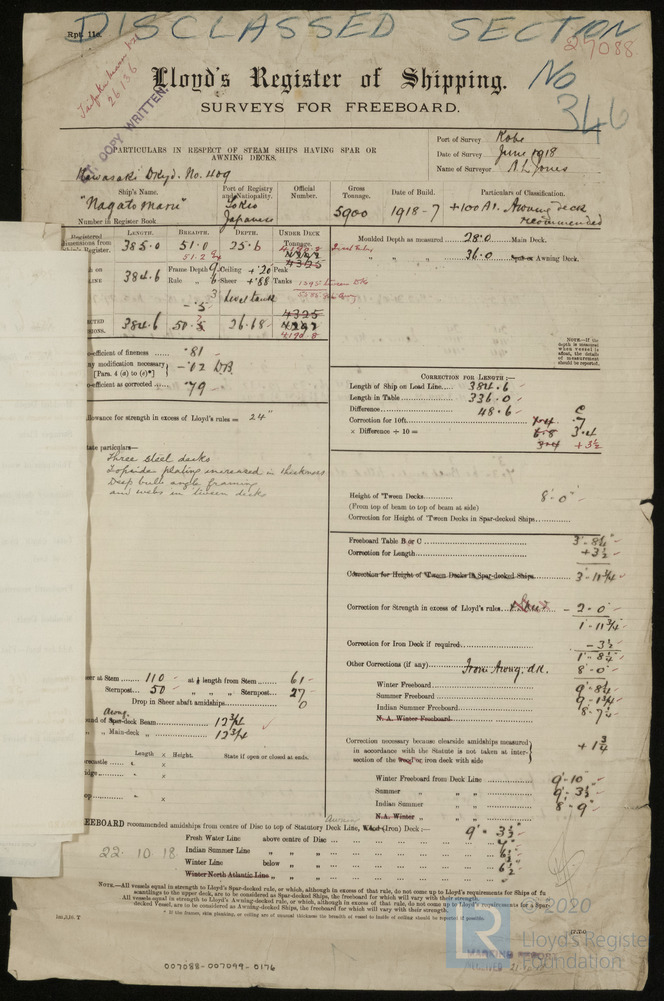 DISCLASSED SECTION
Rpt. 11c.
27088
No 346
26.1.36
COPY WRITTEN.
Lloyd's Register of Shipping.
SURVEYS FOR FREEBOARD.
PARTICULARS IN RESPECT OF STEAM SHIPS HAVING SPAR OR
AWNING DECKS.
Port of Survey Kobe
Date of Survey June 1918
Name of Surveyor A L Jones
Kawasaki Dkyd. No. 409
Ship's Name. Port of Registry and Nationality. Official Number. Gross Tonnage. Date of Build. Particulars of Classification.
"Nagato Maru" Tokio Japanese 5900 1918-7 +100A1. Awning deck recommended
Number in Register Book
Registered LENGTH. BREADTH. DEPTH. UNDER DECK Tonnage.
385.0 51.0 25.6
51.2
4325
384.6 Frame Depth Ceiling +.20 Peak
Rule Sheer +.88 Tanks
level tank
4325
384.6 50.5 26.68
4190.8
Moulded Depth as measured 28.0 Main Deck.
" " " 36.0 Spar or Awning Deck.
NOTE.—If the depth is measured when vessel is afloat, the details of measurement should be reported.
efficient of fineness .81
y modification necessary [Para. 4 (a) to (e)*] -.02 DB
efficient as corrected .79
CORRECTION FOR LENGTH:—
Length of Ship on Load Line 384.6
Length in Table 336.0
Difference 48.6
Correction for 10ft. .7
× Difference ÷ 10 = 3.4
+3½
llowance for strength in excess of Lloyd's rules = 24"
tate particulars—
Three steel decks
Topside plating increased in thickness
Deep bulb angle framing
and webs in tween decks
Height of 'Tween Decks 8'-0"
(From top of beam to top of beam at side)
Correction for Height of 'Tween Decks in Spar-decked Ships
Freeboard Table B or C 3'-8¼"
Correction for Length +3½
Correction for Height of 'Tween Decks in Spar-decked Ships 3'-11¾"
Correction for Strength in excess of Lloyd's rules -2.0
1-11¾
Correction for Iron Deck if required -3½
1'-8¼"
Other Corrections (if any) From Awng. dk. 8'-0"
Winter Freeboard 9'-8¼
Summer Freeboard 9-1¾
Indian Summer Freeboard 8-7¼
N. A. Winter Freeboard
eer at Stem 110 at ⅛ length from Stem 61
Sternpost 50 " " " Sternpost 27
Drop in Sheer abaft amidships 0
Awng.
und of Spar-deck Beam 12¾
" " Main-deck " 12¾
Length × Height. State if open or closed at ends.
Correction necessary because clearside amidships measured in accordance with the Statute is not taken at intersection of the wood or iron deck with side +1¾
Winter Freeboard from Deck Line 9'-10
Summer " " " 9'-3½
Indian Summer " " 8-9
N.A. Winter "
EEBOARD recommended amidships from centre of Disc to top of Statutory Deck Line, Wood (Iron) Deck:— 9'-3½
Fresh Water Line above centre of Disc
Indian Summer Line " "
Winter Line below " " 6½
Winter North Atlantic Line " "
22.10.18
NOTE.—All vessels equal in strength to Lloyd's Spar-decked rule, or which, although in excess of that rule, do not come up to Lloyd's requirements for Ships of
scantlings to the upper deck, are to be considered as Spar-decked Ships, the freeboard for which will vary with their strength.
All vessels equal in strength to Lloyd's Awning-deck rule, or which, although in excess of that rule, do not come up to Lloyd's requirements for a Spar-
decked Vessel, are to be considered as Awning-decked Ships, the freeboard for which will vary with their strength.
007088-007099-0176
LR
© 2020
Lloyd's Register
Foundation